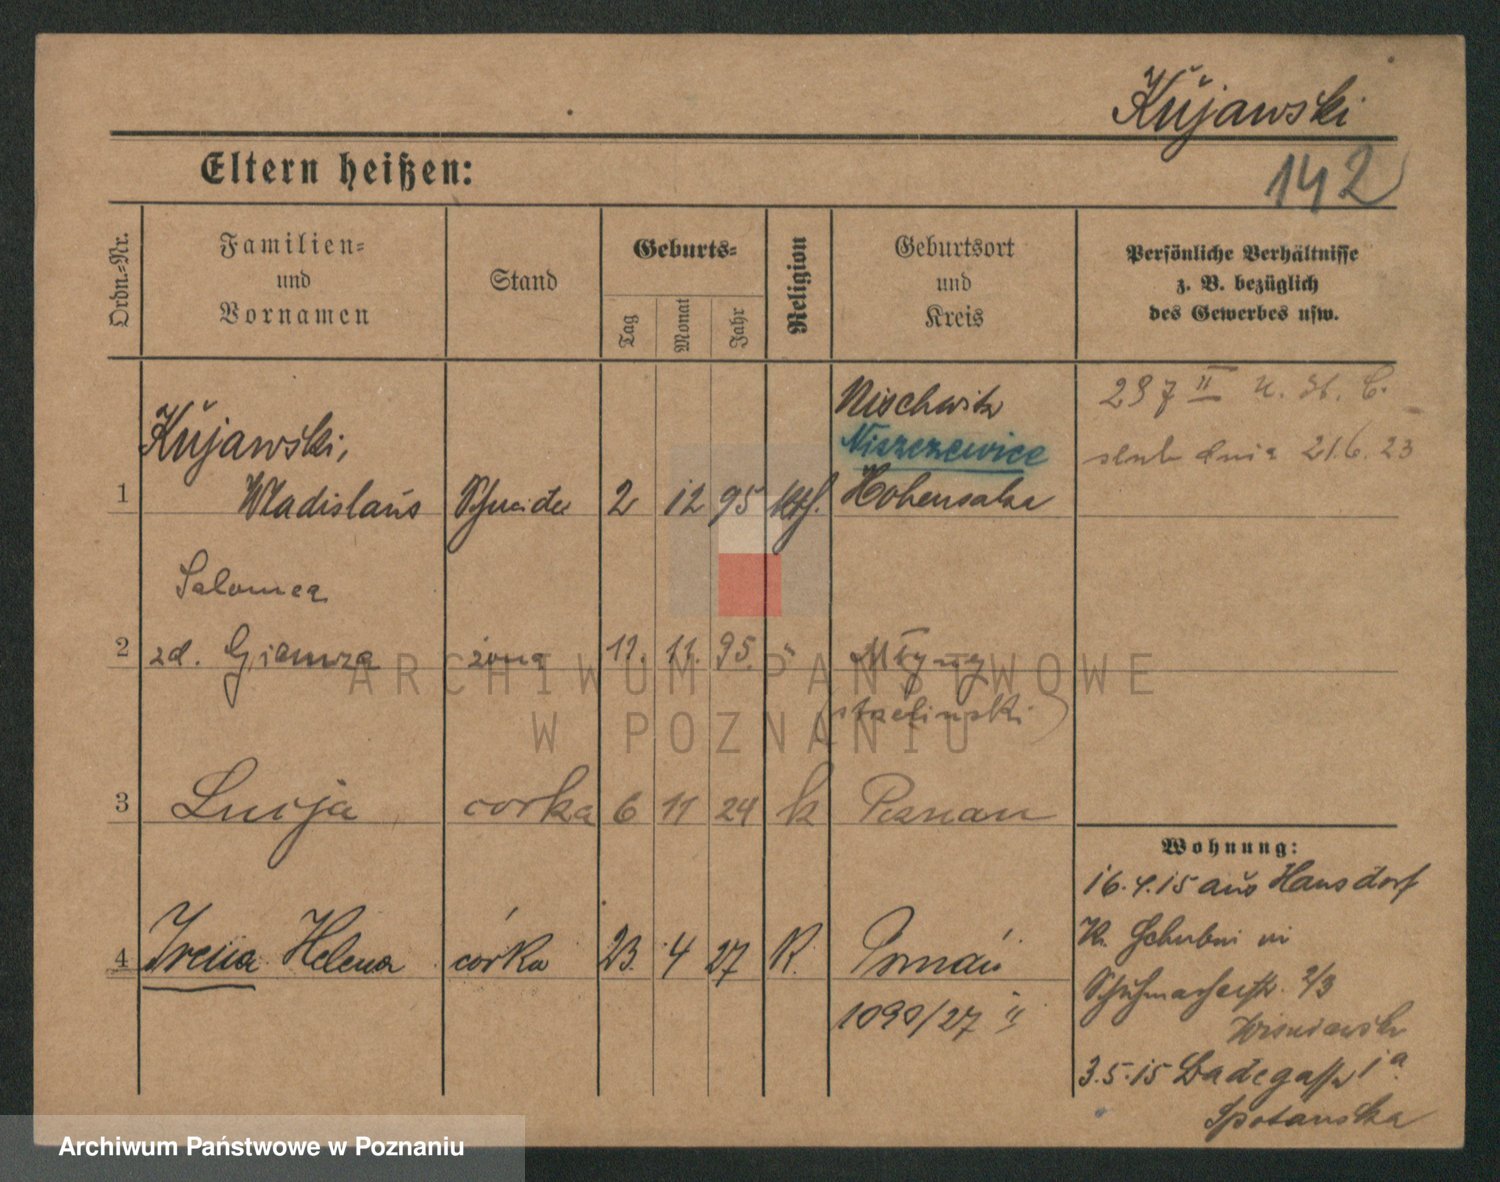 Kŭjawski
142
Eltern heißen:
Ordn.-Nr.
Familien-
und
Vornamen
Stand
Geburts-
Tag
Monat
Jahr
Religion
Geburtsort
und
Kreis
Persönliche Verhältnisse
z. B. bezüglich
des Gewerbes usw.
237 II U. St. C.
ślub dnia 21.6.23
Kŭjawski,
1 Wladislaŭs Schneider 2 12 95 kath.
Nischwitz
Niszczewice
Hohensalza
Salomea
2 zd. żona 12. 11. 95. "
Młyny
(strzeliński)
3 Lucja corka 6 11 24 k Poznan
4 Irena Helena córka 23. 4 27 R. Poznań
1090/27 II
Wohnung:
16.4.15 aŭs Hansdorf
Kr. Schubin in
Schŭhmacherstr. 2/3
Wisniewski
3.5.15 Badegasse 1a
Spotanska
ARCHIWUM PAŃSTWOWE
W POZNANIU
Archiwum Państwowe w Poznaniu